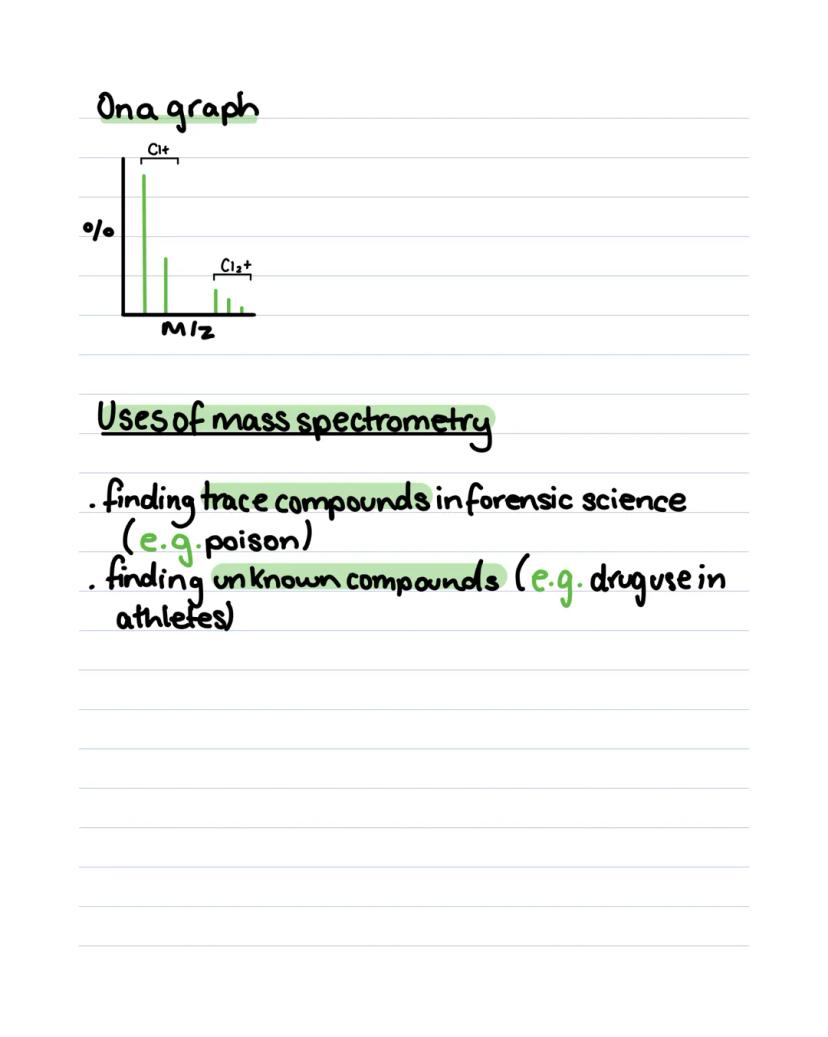 On a graph
Cl+
%
Cl₂+
M/Z
Uses of mass spectrometry
. finding trace compounds in forensic science
(e.g. poison)
. finding unknown compounds (e.g. drug use in
athletes)